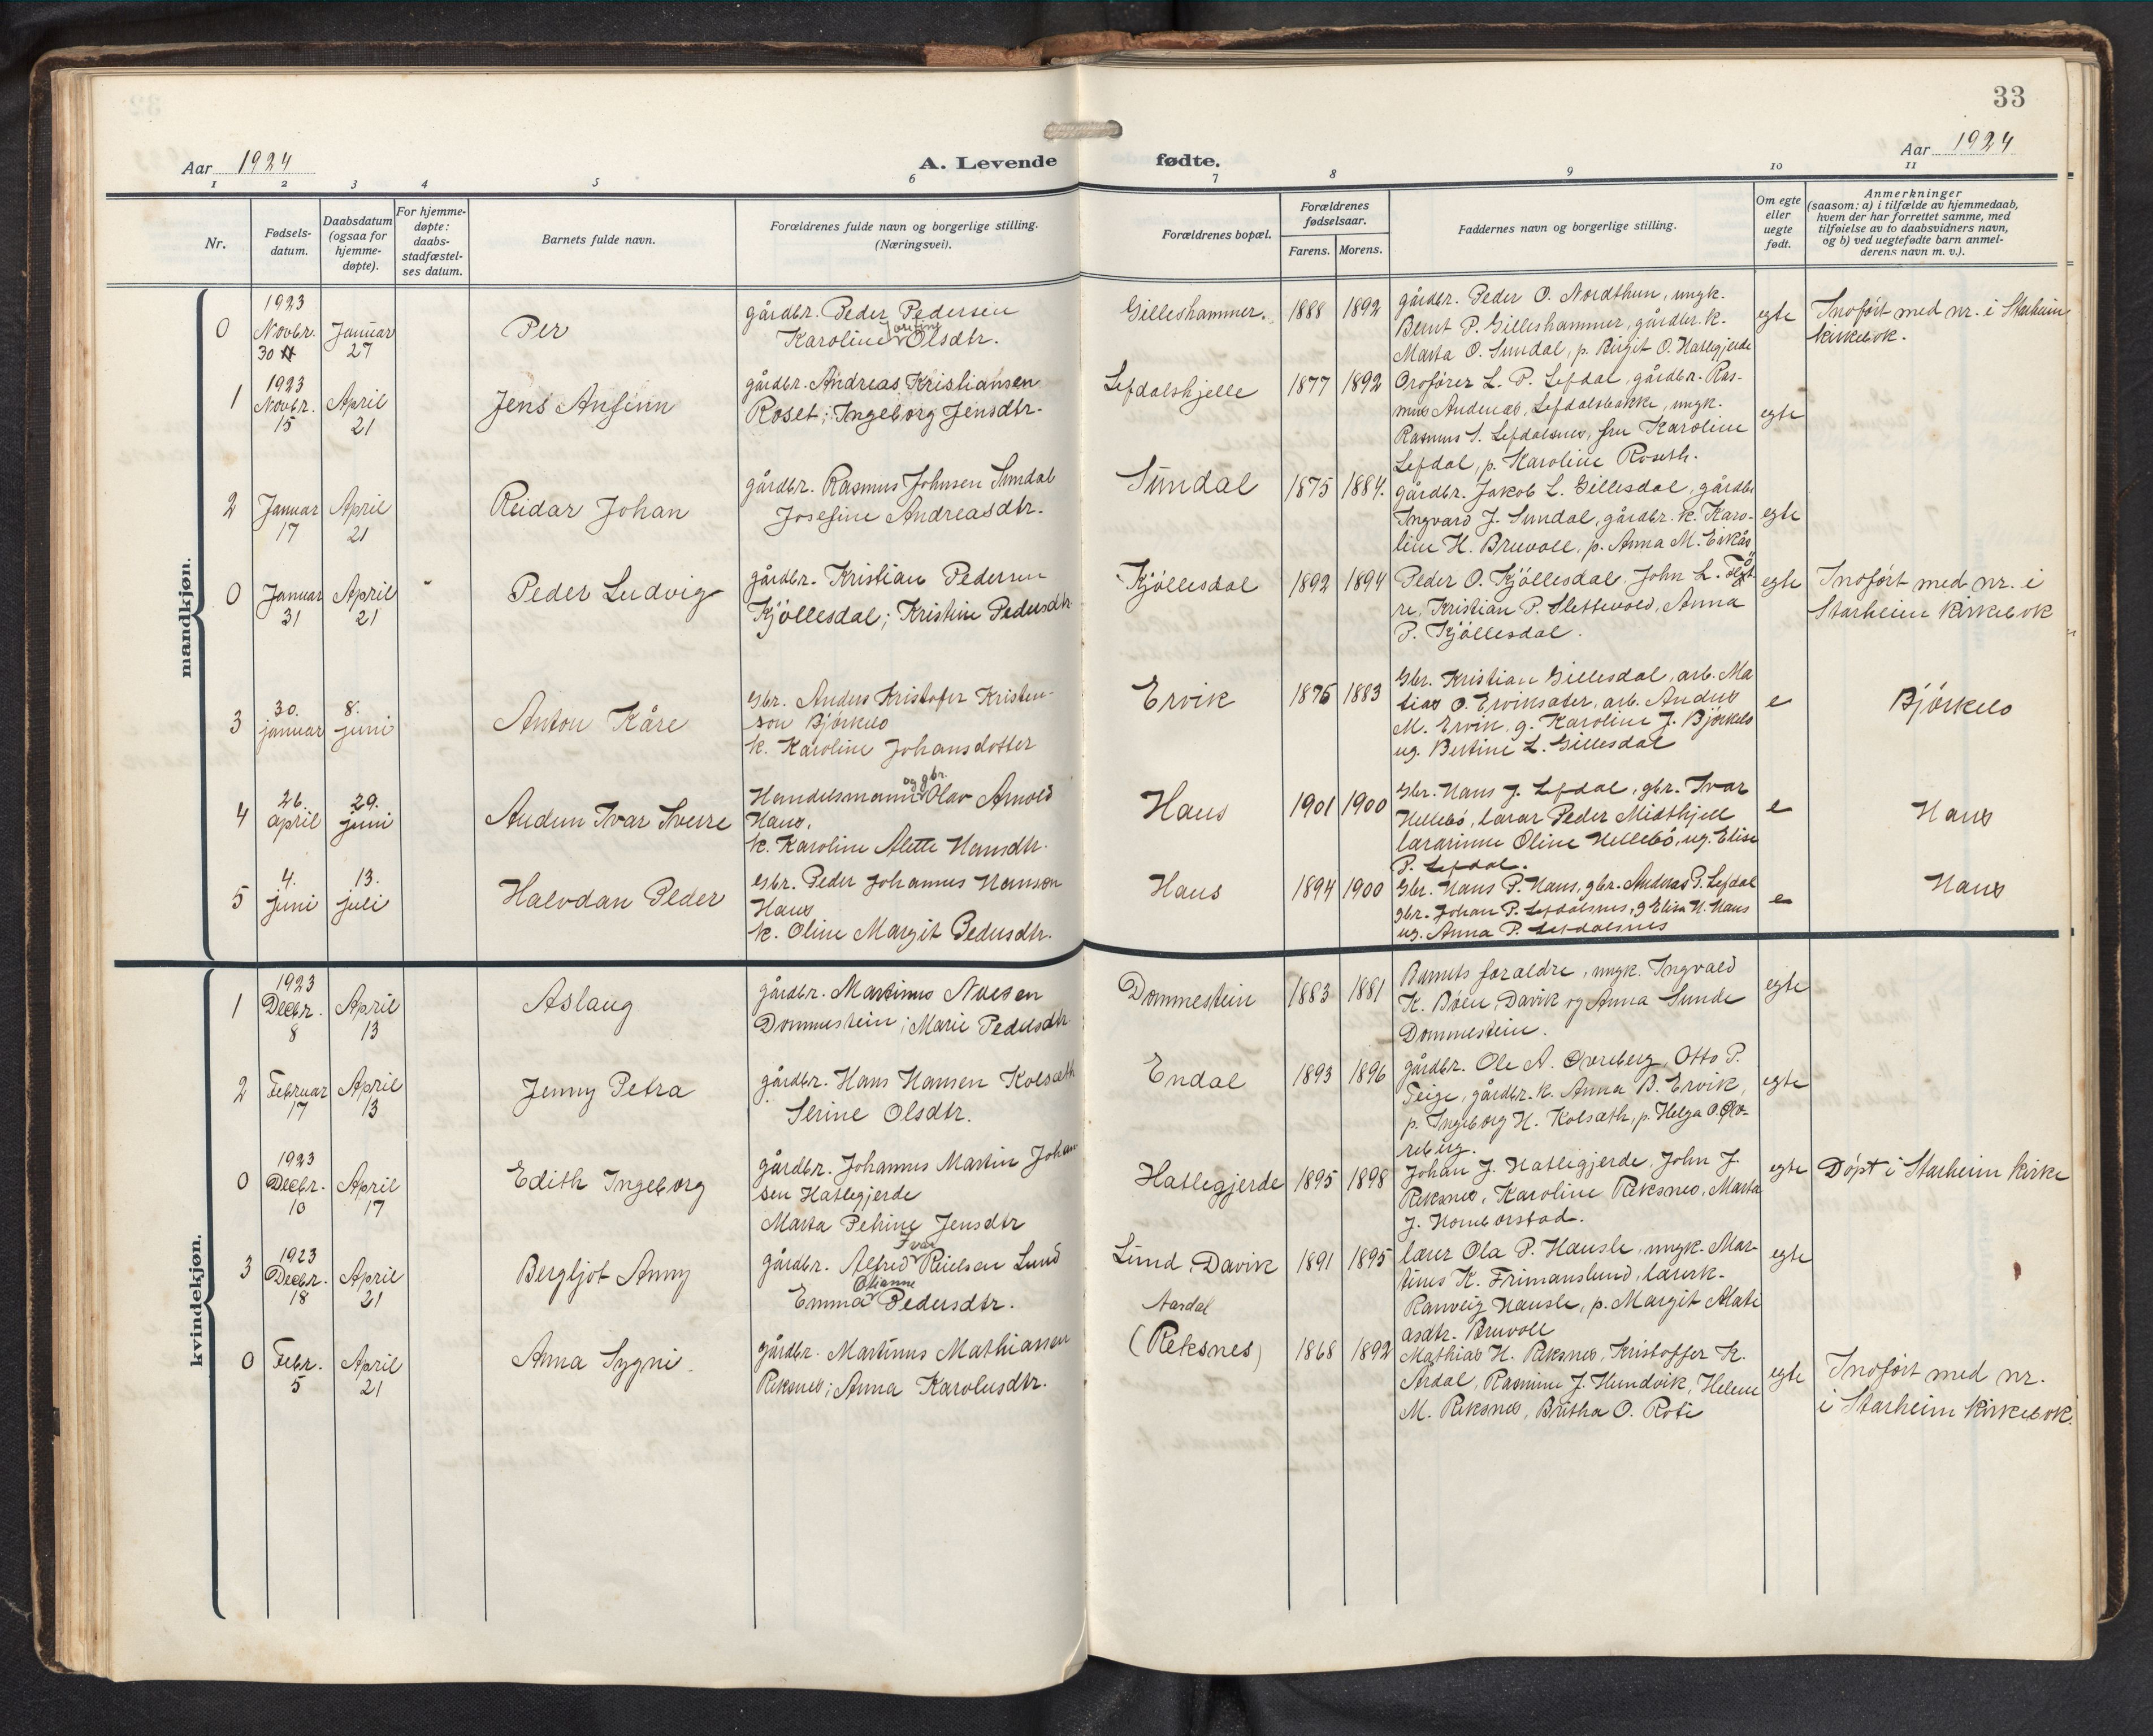 33
Aar 1924
A. Levende fødte.
Aar 1924
1 2 3 4 5 6 7 8 9 10 11
Nr.
Fødsels-
datum.
Daabsdatum
(ogsaa for
hjemme-
døpte).
For hjemme-
døpte:
daabs-
stadfæstel-
ses datum.
Barnets fulde navn.
Forældrenes fulde navn og borgerlige stilling.
(Næringsvei).
Forældrenes bopæl.
Forældrenes
fødselsaar.
Farens. Morens.
Faddernes navn og borgerlige stilling.
Om egte
eller
uegte
født.
Anmerkninger
(saasom: a) i tilfælde av hjemmedaab,
hvem der har forrettet samme, med
tilføielse av to daabsvidners navn,
og b) ved uegtefødte barn anmel-
derens navn m. v.).
mandkjøn.
0
1923
Novbr.
30
Januar
27
Per
gårdbr. Peder Pedersen
Karoline Olsdtr.
Gilleshammer.
1888 1892
gårdbr. Peder O. Nordthun, ungk.
Bernt P. Gilleshammer, gårdbr. k.
Marta O. Sundal, p. Birgit O. Hatlegjerde
egte
Indført med nr. i Starheim
kirkebok.
1
1923
Novbr.
15
April
21
Jens Anfinn
gårdbr. Andreas Kristiansen
Roset; Ingeborg Jensdtr.
Lefdalshjelle
1877 1892
L. P. Lefdal, gårdbr. Ras-
mus Andenæs, Lefdalsbakke, ungk.
Rasmus S. Lefdalsnes, fru Karoline
Lefdal, p. Karoline Roseth.
egte
2
Januar
17
April
21
Reidar Johan
gårdbr. Rasmus Johnsen Sundal
Josefine Andreasdtr.
Sundal
1875 1884.
gårdbr. Jakob L. Gillesdal, gårdbr
Ingvard J. Sundal, gårdbr. k. Karo-
line H. Bruvoll, p. Anna M. Eikås
egte
0
Januar
31
April
21
Peder Ludvig
gårdbr. Kristian Pedersen
Kjöllesdal; Kristine Pedersdtr
Kjöllesdal
1892 1894
Peder O. Kjöllesdal, John L.
Kristian P. Slettevold, Anna
P. Kjöllesdal.
egte
Indført med nr. i
Starheim kirkebok
3
30.
januar
8.
juni
Anton Kåre
Gbr. Anders Kristofer Kristen-
son Bjørkelo
k. Karoline Johansdotter
Ervik
1876 1883
Gbr. Kristian Gillesdal, arb. Ma
tias O. Erviksæter, arb. Anders
M. Ervik, g. Karoline J. Bjørkelo
ug. Bertine L. Gillesdal
e
Bjørkelo
4
26.
april
29.
juni
Audun Ivar Sverre
og gbr.
Handelsmann Olav Arnold
Haus,
k. Karoline Alette Hansdtr.
Haus
1901 1900
Gbr. Hans J. Lefdal, gbr. Ivar
Hellebö, lærar Peder Midthjell
lærarinne Oline Hellebö, ug. Elise
P. Lefdal.
e
Haus
5
4.
juni
13.
juli
Halvdan Peder
Gbr. Peder Johannes Hanson
Haus
k. Oline Margit Pedersdtr.
Haus
1894 1900
Gbr. Hans P. Haus, gbr. Andreas P. Lefdal
gbr. Johan P. Lefdalsnes, g Elisa N. Haus
ug. Anna P. Lefdalsnes
e
Haus
kvindekjøn.
1
1923
Decbr.
8
April
13
Aslaug
gårdbr. Martinus
Dommestein; Marie Pedersdtr
Dommestein
1883 1881
Barnets forældre, ungk. Ingvald
K. Böen, Davik og Anna Sunde
Dommestein.
egte
2
Februar
17
April
13
Jenny Petra
gårdbr. Hans Hansen Kolsæth
Serine Olsdtr.
Endal
1893 1896
gårdbr. Ole A. Overeberg, Otto P.
Teige, gårdbr. k. Anna B. Ervik,
p. Ingeborg H. Kolsæth, p. Helga O. Ove-
reberg.
egte
0
1923
Decbr.
10
April
17
Edith Ingeborg
gårdbr. Johannes Martin Johan
sen Hatlegjerde
Marta Petrine Jensdtr
Hatlegjerde
1895 1898
Johan J. Hatlegjerde, John J.
Reksnes, Karoline Reksnes, Marta
J. Homborstad.
egte
Døpt i Starheim kirke
3
1923
Decbr.
18
April
21
Bergljot Anny
Ivar
gårdbr. Alfred Lund
Olianne
Emma Pedersdtr.
Lund, Davik
1891 1895
lærer Ola P. Hausle, ungk. Mar-
tinus K. Frimanslund, lærerk.
Ranveig Hausle, p. Margit Mati
asdtr. Bruvoll
egte
0
Febr.
5
April
21
Anna Sygni
gårdbr. Martinus Mathiassen
Reksnes; Anna Karolusdtr.
Aardal
(Reksnes)
1868 1892
Mathias H. Reksnes, Kristoffer K.
Ardal, Rasmine J. Hundvik, Helene
M. Reksnes, Britha O. Roti
egte
Indført med nr.
i Starheim kirkebok.